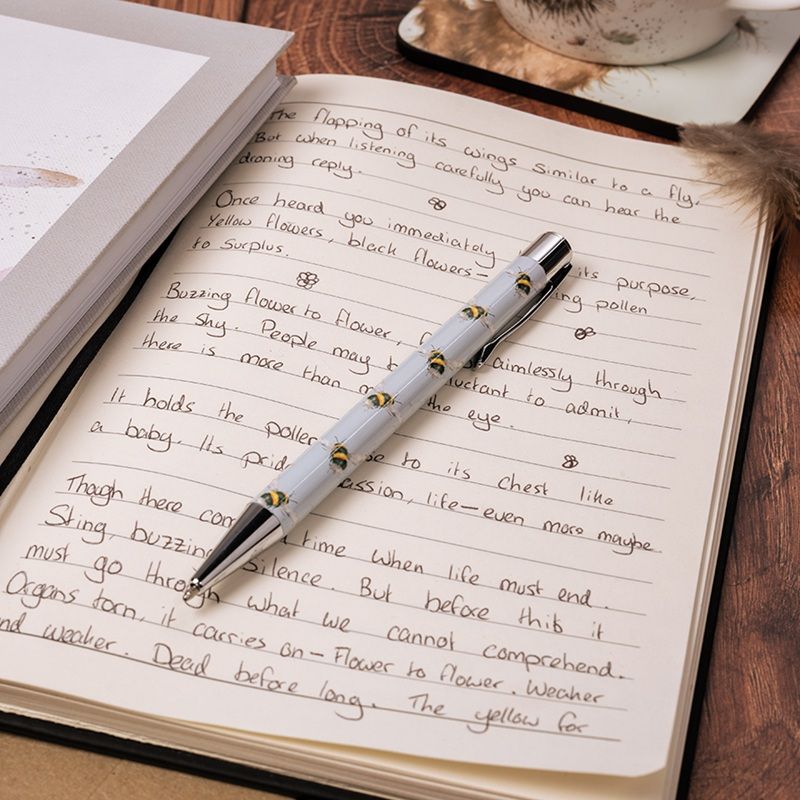 The flapping of its wings similar to a fly.
But when listening carefully you can hear the
droning reply.
Once heard you immediately its purpose,
Yellow flowers, black flowers- ing pollen
to surplus.
Buzzing flower to flower, aimlessly through
the sky. People may luctant to admit,
there is more than the eye.
It holds the pollen to its chest like
a baby. Its pride assion, life-even more maybe.
Though there a time when life must end.
Sting, buzzing silence. But before this it
must go through what we cannot comprehend.
Organs torn, it carries on-Flower to flower. Weaker
nd weaker. Dead before long. The yellow for